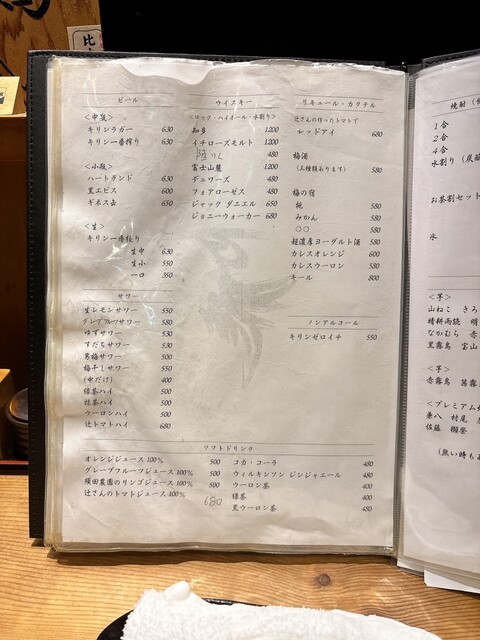 ビール
<中瓶>
キリンラガー 630
キリン一番搾り 630
<小瓶>
ハートランド 630
黒エビス 600
ギネス缶 650
<生>
キリン一番搾り
生中 630
生小 550
一口 350
サワー
生レモンサワー 550
グレープフルーツサワー 580
ゆずサワー 530
すだちサワー 530
男梅サワー 500
梅干しサワー 550
(中だけ) 400
緑茶ハイ 500
桂茶ハイ 500
ウーロンハイ 500
辻トマトハイ 680
ウイスキー
<ロック・ハイオール・水割り>
知多 1200
イチローズモルト 1200
陸 りく 480
富士山麓 1200
デュワーズ 480
フォアローゼス 480
ジャック ダニエル 650
ジョニーウォーカー 680
リキュール・カクテル
辻さんの作ったトマトで
レッドアイ 680
梅酒
(三種類あります) 580
梅の宿
桃 580
みかん 580
○○ 580
超濃厚ヨーグルト酒 580
カシスオレンジ 600
カシスウーロン 580
キール 800
ノンアルコール
キリンゼロイチ 550
ソフトドリンク
オレンジジュース 100% 500
グレープフルーツジュース 100% 500
須田農園のリンゴジュース 100% 500
辻さんのトマトジュース 100% 680
コカ・コーラ 480
ウィルキンソン ジンジャエール 480
ウーロン茶 400
緑茶 400
黒ウーロン茶 480
焼酎
1合
2合
4合
水割り
お茶割セット
氷
<芋>
山ねこ きろ
晴耕雨読
なかむら 赤
黒霧島 宝山
<芋>
赤霧島 茜霧
<プレミアム
兼八 村尾
佐藤
(無い時も
比